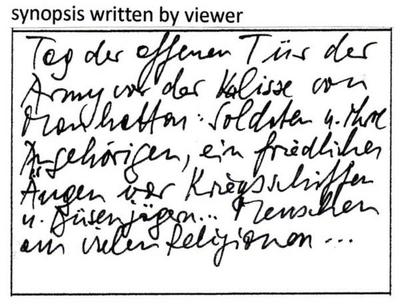 synopsis written by viewer
Tag der offenen Tür der
Army vor der Kulisse von
Manhattan: Soldaten u. Ihre
Angehörigen, ein friedliches
vor Kriegsschiffen
u. Düsenjägern... Menschen
aus vielen Religionen...